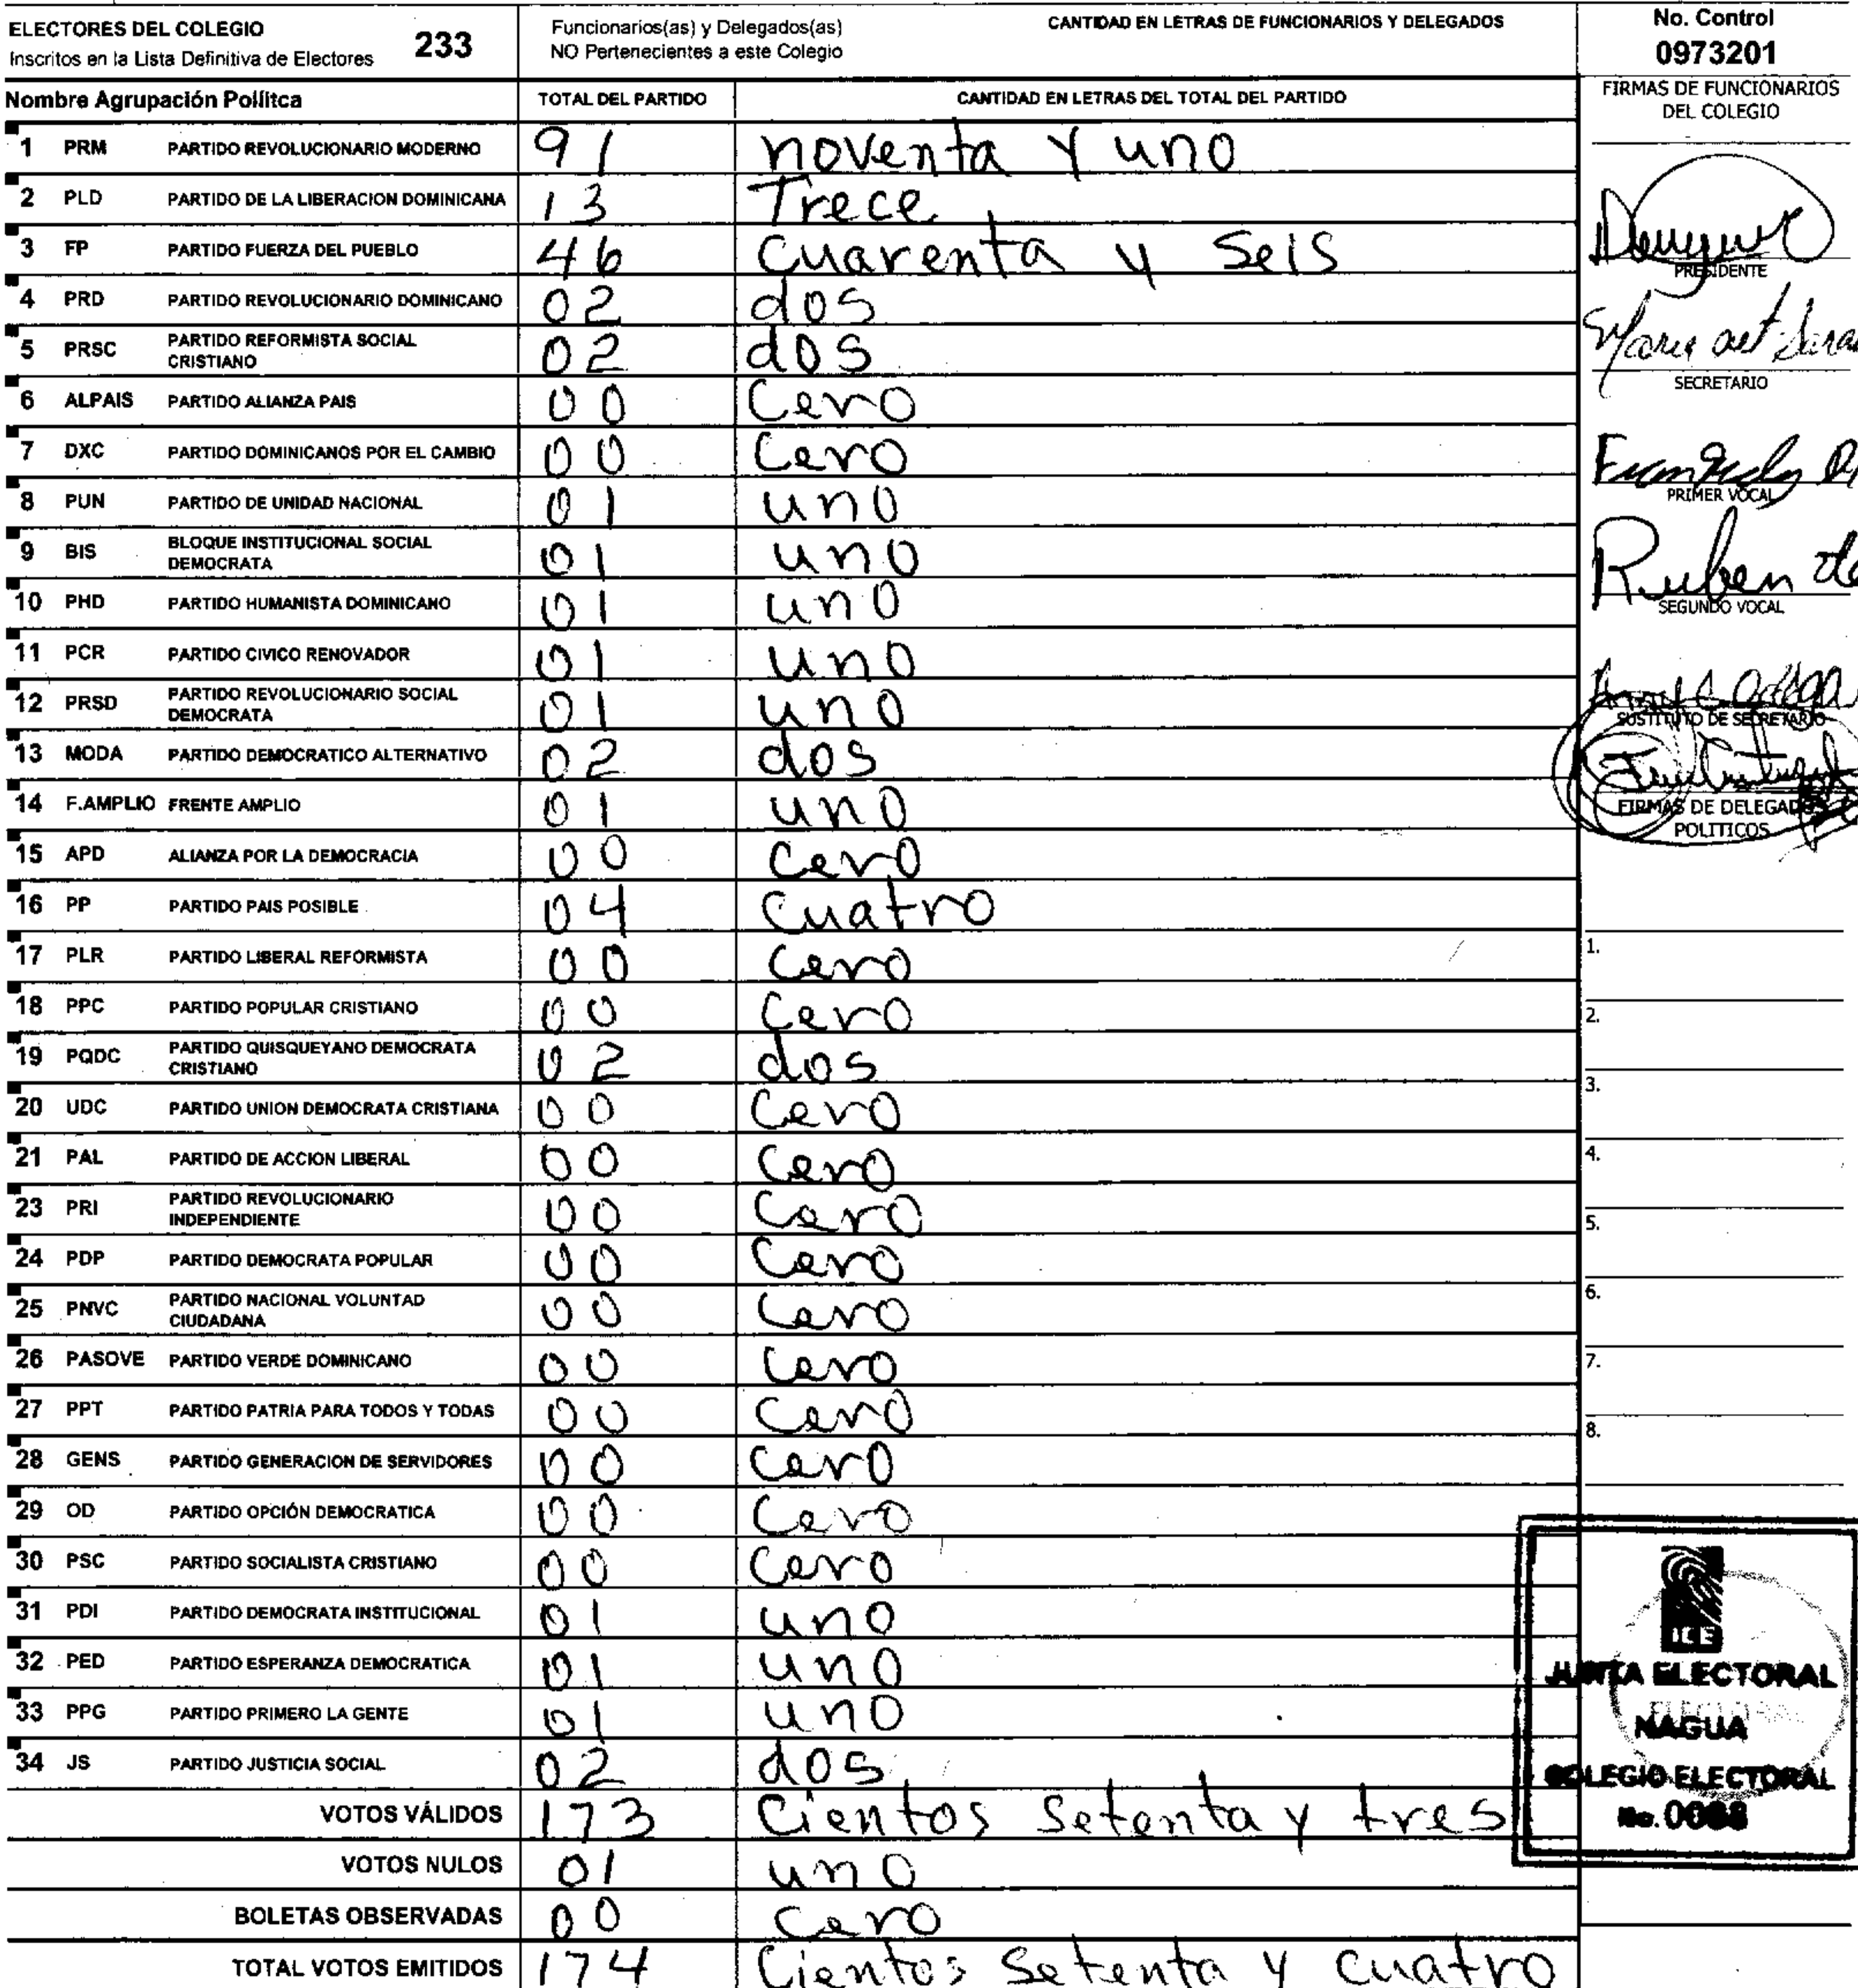 ELECTORES DEL COLEGIO
Inscritos en la Lista Definitiva de Electores 233
Funcionarios(as) y Delegados(as)
NO Pertenecientes a este Colegio
CANTIDAD EN LETRAS DE FUNCIONARIOS Y DELEGADOS
No. Control
0973201
Nombre Agrupación Pollitca TOTAL DEL PARTIDO CANTIDAD EN LETRAS DEL TOTAL DEL PARTIDO
1 PRM PARTIDO REVOLUCIONARIO MODERNO 91 noventa y uno
2 PLD PARTIDO DE LA LIBERACION DOMINICANA 13 Trece
3 FP PARTIDO FUERZA DEL PUEBLO 46 Cuarenta y Seis
4 PRD PARTIDO REVOLUCIONARIO DOMINICANO 02 dos
5 PRSC PARTIDO REFORMISTA SOCIAL CRISTIANO 02 dos
6 ALPAIS PARTIDO ALIANZA PAIS 00 Cero
7 DXC PARTIDO DOMINICANOS POR EL CAMBIO 00 Cero
8 PUN PARTIDO DE UNIDAD NACIONAL 01 uno
9 BIS BLOQUE INSTITUCIONAL SOCIAL DEMOCRATA 01 uno
10 PHD PARTIDO HUMANISTA DOMINICANO 01 uno
11 PCR PARTIDO CIVICO RENOVADOR 01 uno
12 PRSD PARTIDO REVOLUCIONARIO SOCIAL DEMOCRATA 01 uno
13 MODA PARTIDO DEMOCRATICO ALTERNATIVO 02 dos
14 F.AMPLIO FRENTE AMPLIO 01 uno
15 APD ALIANZA POR LA DEMOCRACIA 00 Cero
16 PP PARTIDO PAIS POSIBLE 04 Cuatro
17 PLR PARTIDO LIBERAL REFORMISTA 00 Cero
18 PPC PARTIDO POPULAR CRISTIANO 00 Cero
19 PQDC PARTIDO QUISQUEYANO DEMOCRATA CRISTIANO 02 dos
20 UDC PARTIDO UNION DEMOCRATA CRISTIANA 00 Cero
21 PAL PARTIDO DE ACCION LIBERAL 00 Cero
23 PRI PARTIDO REVOLUCIONARIO INDEPENDIENTE 00 Cero
24 PDP PARTIDO DEMOCRATA POPULAR 00 Cero
25 PNVC PARTIDO NACIONAL VOLUNTAD CIUDADANA 00 Cero
26 PASOVE PARTIDO VERDE DOMINICANO 00 Cero
27 PPT PARTIDO PATRIA PARA TODOS Y TODAS 00 Cero
28 GENS PARTIDO GENERACION DE SERVIDORES 00 Cero
29 OD PARTIDO OPCIÓN DEMOCRATICA 00 Cero
30 PSC PARTIDO SOCIALISTA CRISTIANO 00 Cero
31 PDI PARTIDO DEMOCRATA INSTITUCIONAL 01 uno
32 PED PARTIDO ESPERANZA DEMOCRATICA 01 uno
33 PPG PARTIDO PRIMERO LA GENTE 01 uno
34 JS PARTIDO JUSTICIA SOCIAL 02 dos
VOTOS VÁLIDOS 173 Cientos Setenta y tres
VOTOS NULOS 01 uno
BOLETAS OBSERVADAS 00 Cero
TOTAL VOTOS EMITIDOS 174 Cientos Setenta y Cuatro
FIRMAS DE FUNCIONARIOS
DEL COLEGIO
PRESIDENTE
SECRETARIO
PRIMER VOCAL
Ruben de
SEGUNDO VOCAL
SUSTITUTO DE SECRETARIO
FIRMAS DE DELEGADOS
POLITICOS
1.
2.
3.
4.
5.
6.
7.
8.
JCE
JUNTA ELECTORAL
NAGUA
COLEGIO ELECTORAL